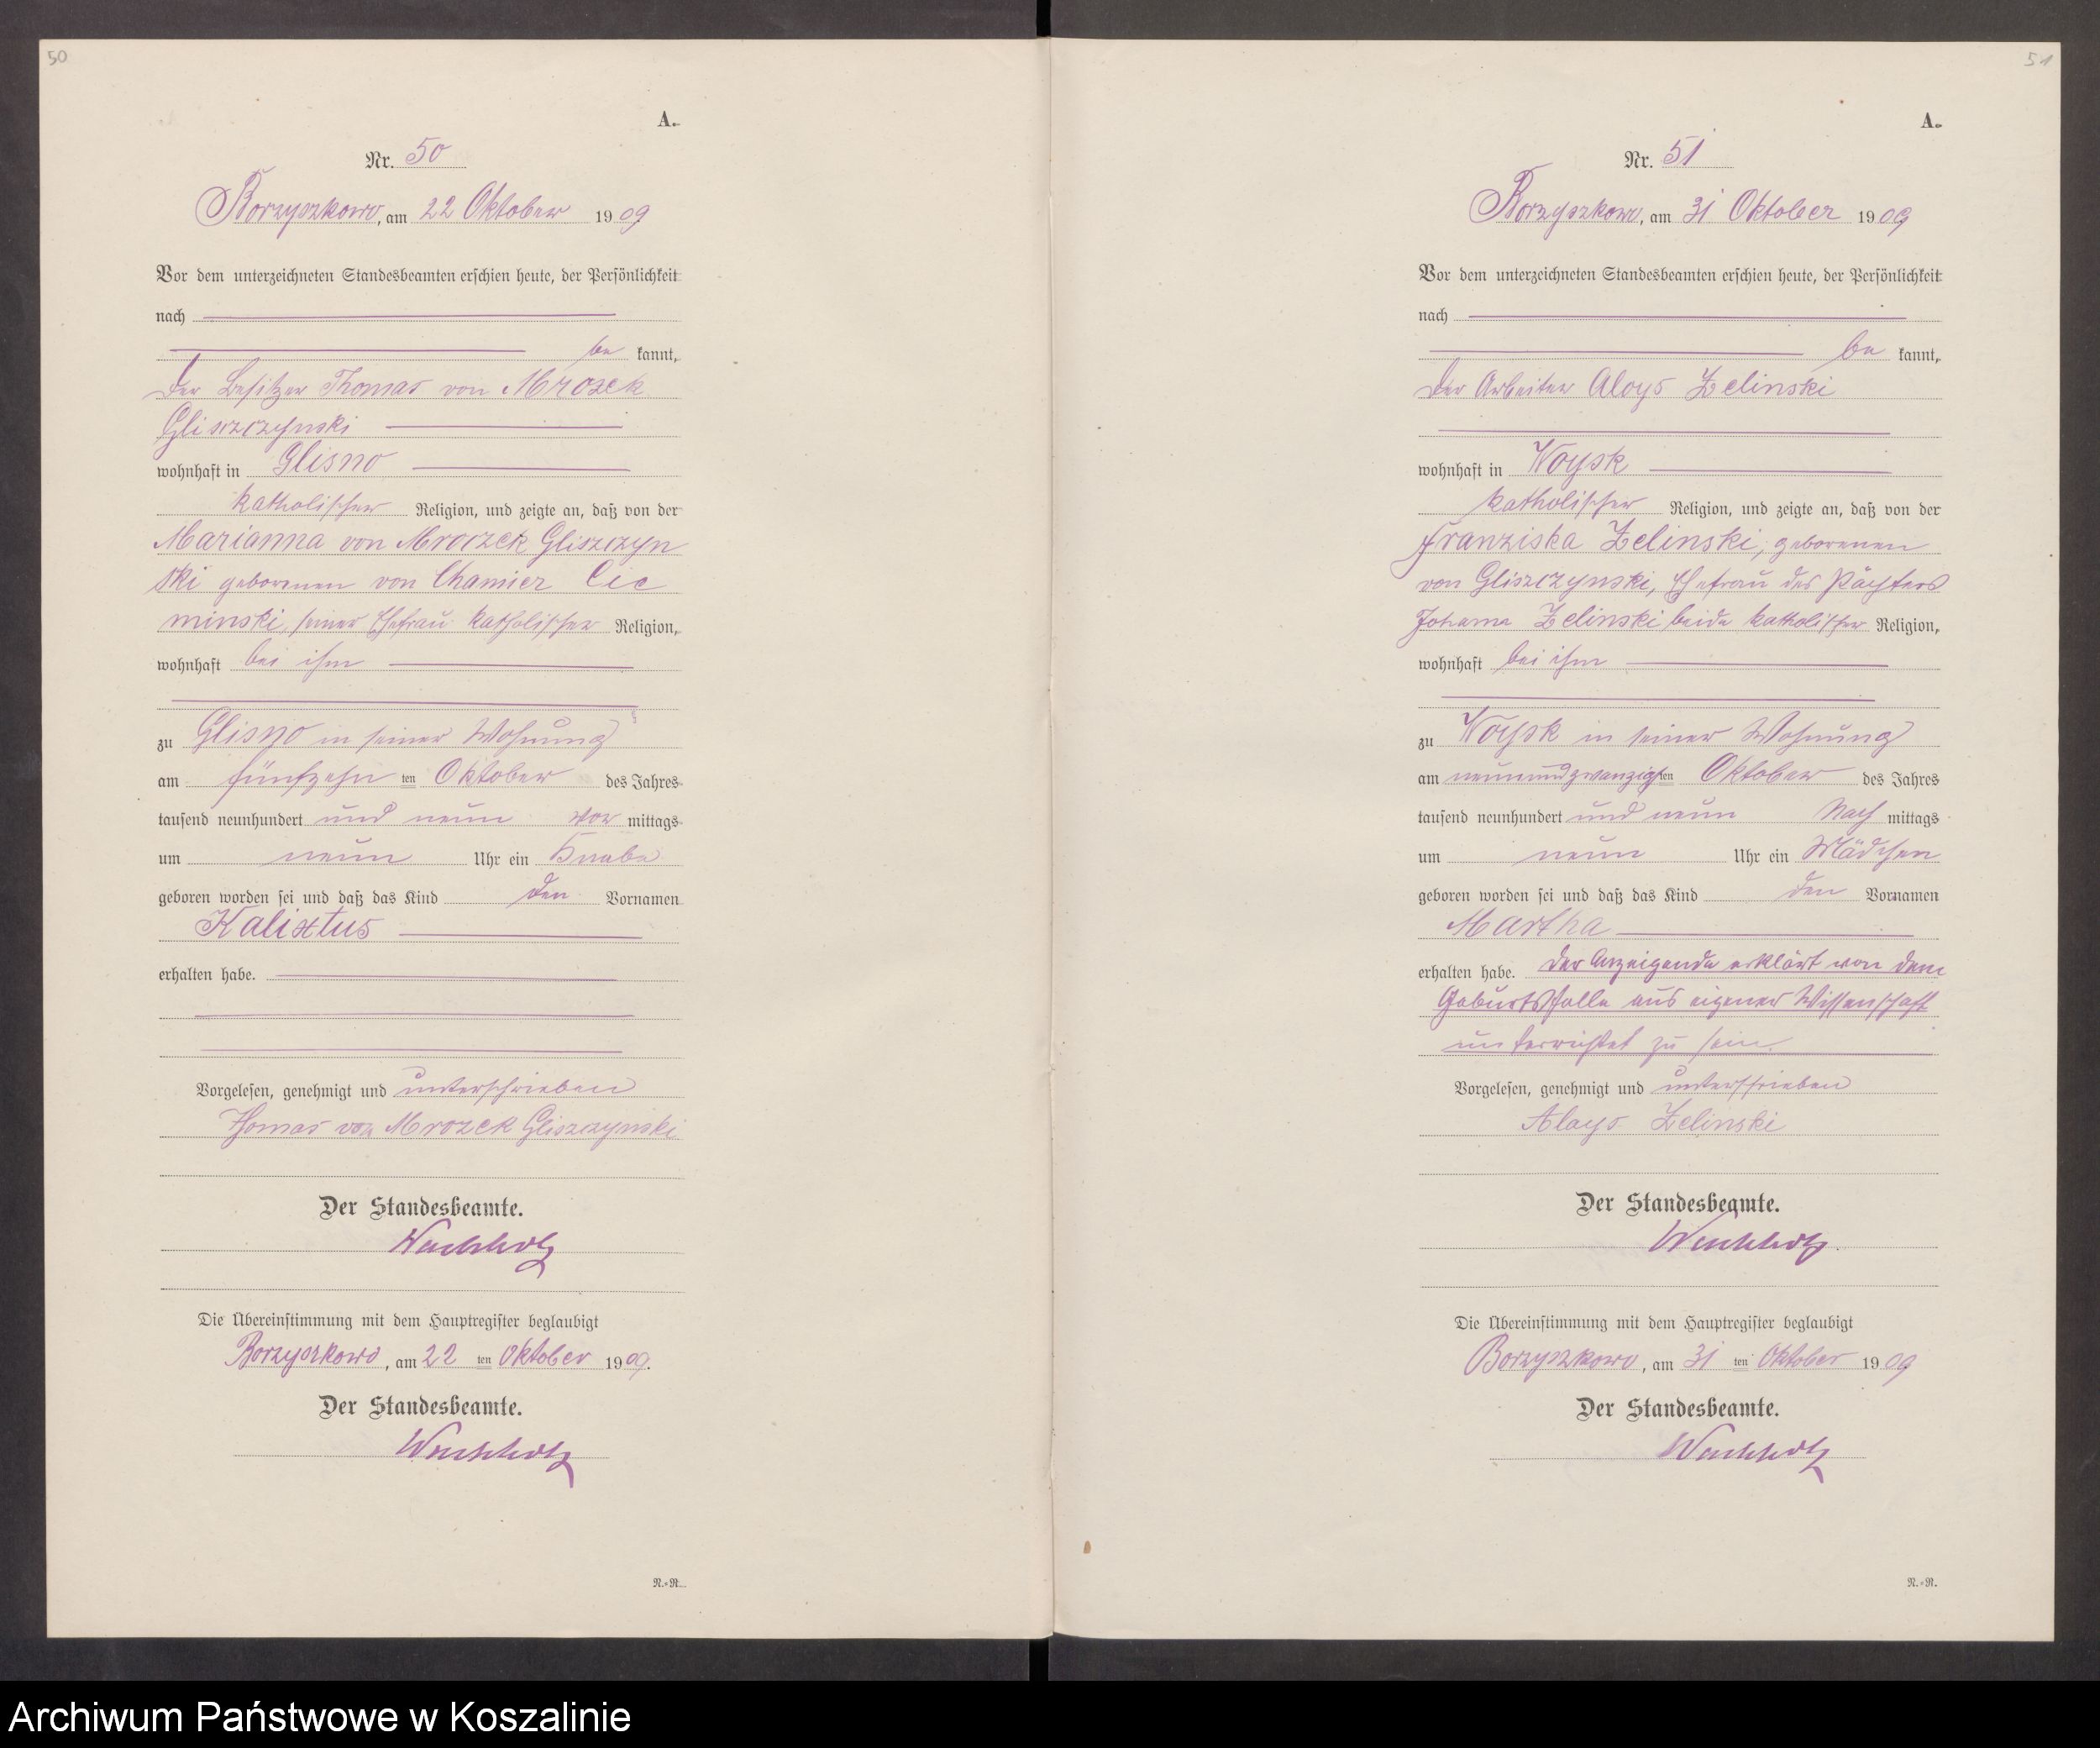 50
A.
Nr. 50
Borzyszkowo, am 22 Oktober 1909
Vor dem unterzeichneten Standesbeamten erschien heute, der Persönlichkeit
nach
be kannt,
der Besitzer Thomas von Mrozek
Gliszczynski
wohnhaft in Glisno
katholischer Religion, und zeigte an, daß von der
Marianna von Mroczek Gliszczyn
ski geborenen von Chamier Cie
minski, seiner Ehefrau katholischer Religion,
wohnhaft bei ihm
zu Glisno in seiner Wohnung
am fünfzehn ten Oktober des Jahres
tausend neunhundert und neun vor mittags
um neun Uhr ein Knabe
geboren worden sei und daß das Kind den Vornamen
Kalixtus
erhalten habe.
Vorgelesen, genehmigt und unterschrieben
Thomas von Mrozek Gliszczynski
Der Standesbeamte.
Die Übereinstimmung mit dem Hauptregister beglaubigt
Borzyszkowo, am 22 ten Oktober 1909.
Der Standesbeamte.
N.=R.
51
A.
Nr. 51
Borzyszkowo, am 31 Oktober 1909
Vor dem unterzeichneten Standesbeamten erschien heute, der Persönlichkeit
nach
be kannt,
der Arbeiter Aloys Zelinski
wohnhaft in Woysk
katholischer Religion, und zeigte an, daß von der
Franziska Zelinski, geborenen
von Gliszczynski, Ehefrau des Pächters
Johann Zelinski beide katholischer Religion,
wohnhaft bei ihm
zu Woysk in seiner Wohnung
am neunundzwanzigsten Oktober des Jahres
tausend neunhundert und neun Nach mittags
um neun Uhr ein Mädchen
geboren worden sei und daß das Kind den Vornamen
Martha
erhalten habe. Der Anzeigende erklärt von dem
Geburtsfalle aus eigener Wissenschaft
unterrichtet zu sein.
Vorgelesen, genehmigt und unterschrieben
Aloys Zelinski
Der Standesbeamte.
Die Übereinstimmung mit dem Hauptregister beglaubigt
Borzyszkowo, am 31 ten Oktober 1909
Der Standesbeamte.
N.=R.
Archiwum Państwowe w Koszalinie